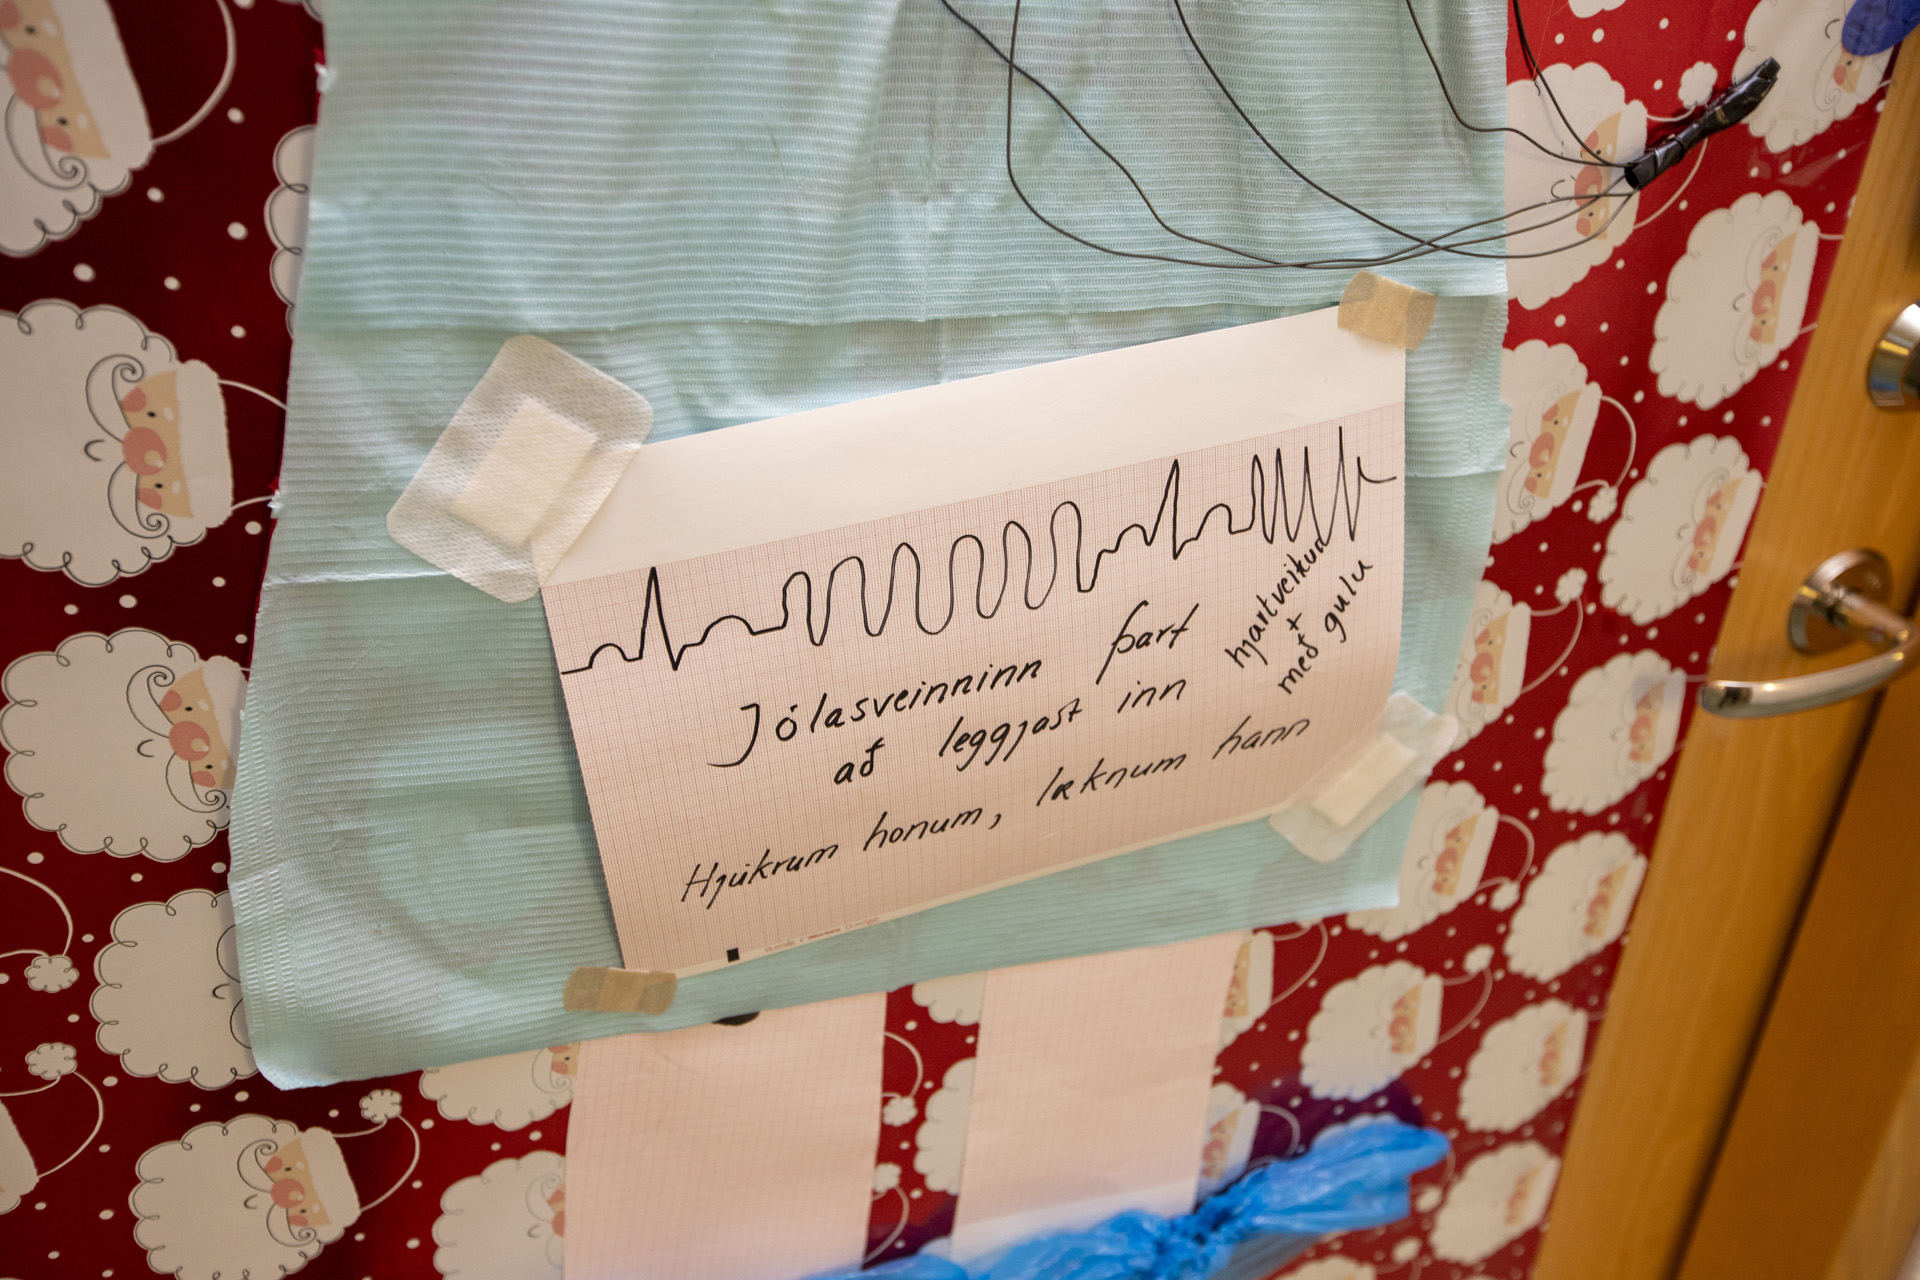 Jólasveinninn þarf
að leggjast inn
hjartveikur
+
með gulu
Hjúkrum honum, læknum hann